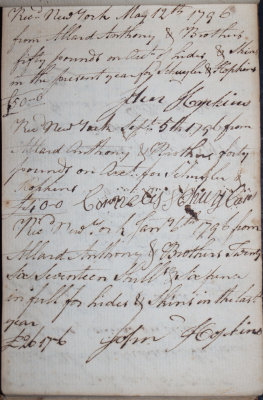 Rec.d New York May 12th 1796
from Allard Anthony & Brothers
fifty pounds on Acct. hides & Skins
in the present year for Schuyler & Hopkins
£50-0 John Hopkins
Rec.d New York Sept. 5th 1796 from
Allard Anthony & Brothers forty
pounds on Acct. for Schuyler &
Hopkins
£40-0-0 Cornelius Schuyler
Rec.d New York Jan. 6th 1796 from
Allard Anthony & Brothers Twenty
Six Seventeen Shill.s & Six pence
in full for hides & Skins in the last
year
£26 17 6 John Hopkins